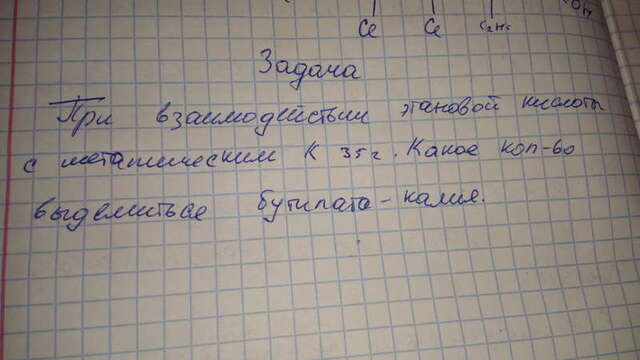 Cl Cl C₂H₅ OH
Задача
При взаимодействии этановой кислоты
с металическим К 35 г. Какое кол-во
выделиться бутилата-калия.